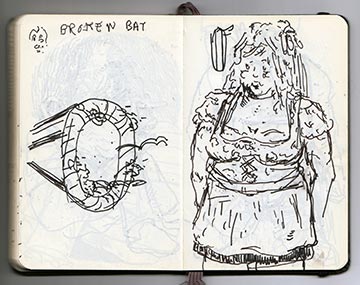 BROKEN BAY